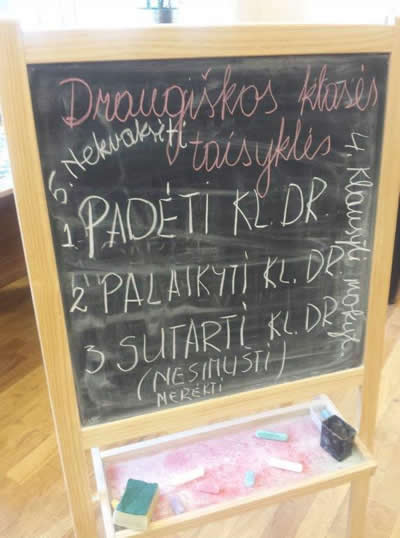 Draugiškos klasės
taisyklės
1. PADĖTI KL. DR.
2. PALAIKYTI KL. DR.
3 SUTARTI KL. DR.
(NESIMUŠTI)
NERĖKTI
4. Klausyti